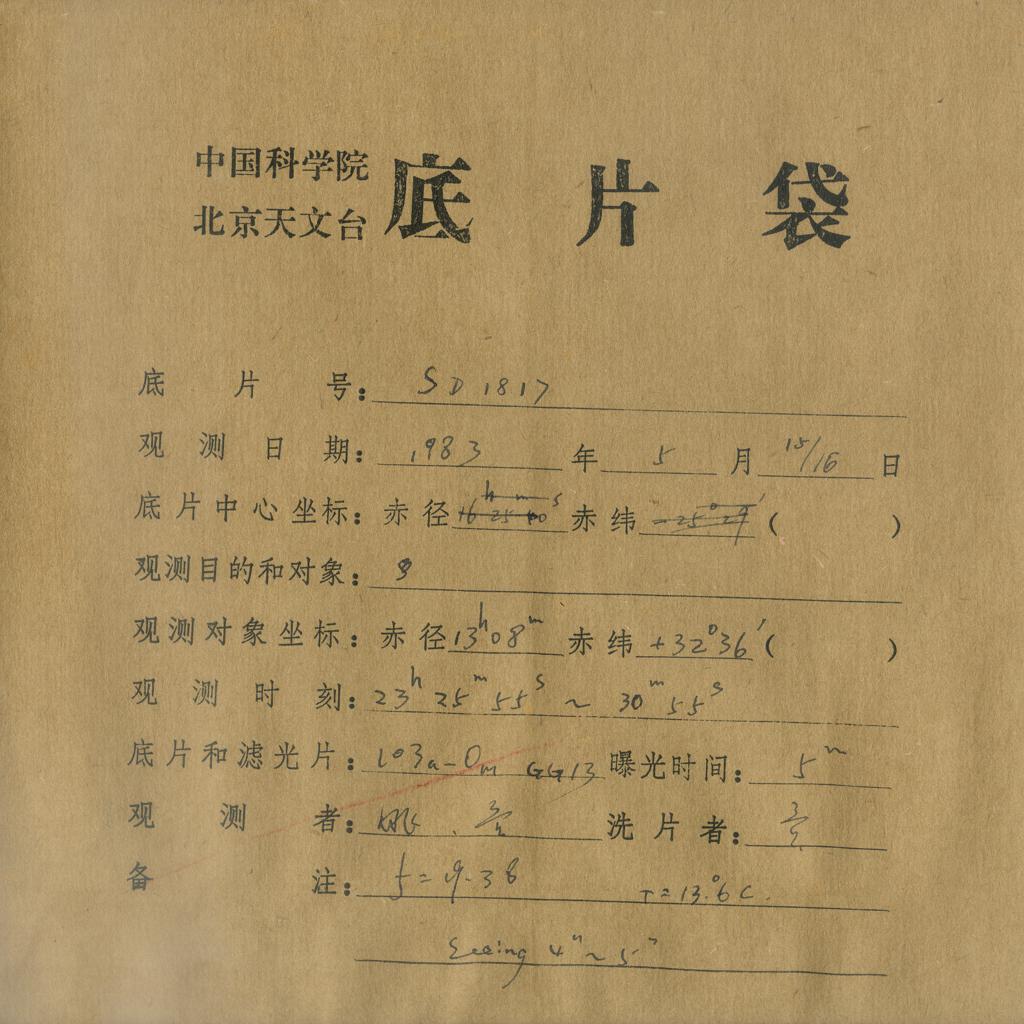 中国科学院
北京天文台 底片袋
底片号: SD 1817
观测日期: 1983 年 5 月 15/16 日
底片中心坐标: 赤径 16h 25m 40s 赤纬 -25°29′ ( )
观测目的和对象:
观测对象坐标: 赤径 13h08m 赤纬 +32°36′ ( )
观测时刻: 23h 25m 55s ~ 30m 55s
底片和滤光片: 103a-O GG13 曝光时间: 5m
观测者: 洗片者:
备注: f=9.38 T=13.°6 C.
Seeing 4″~5″